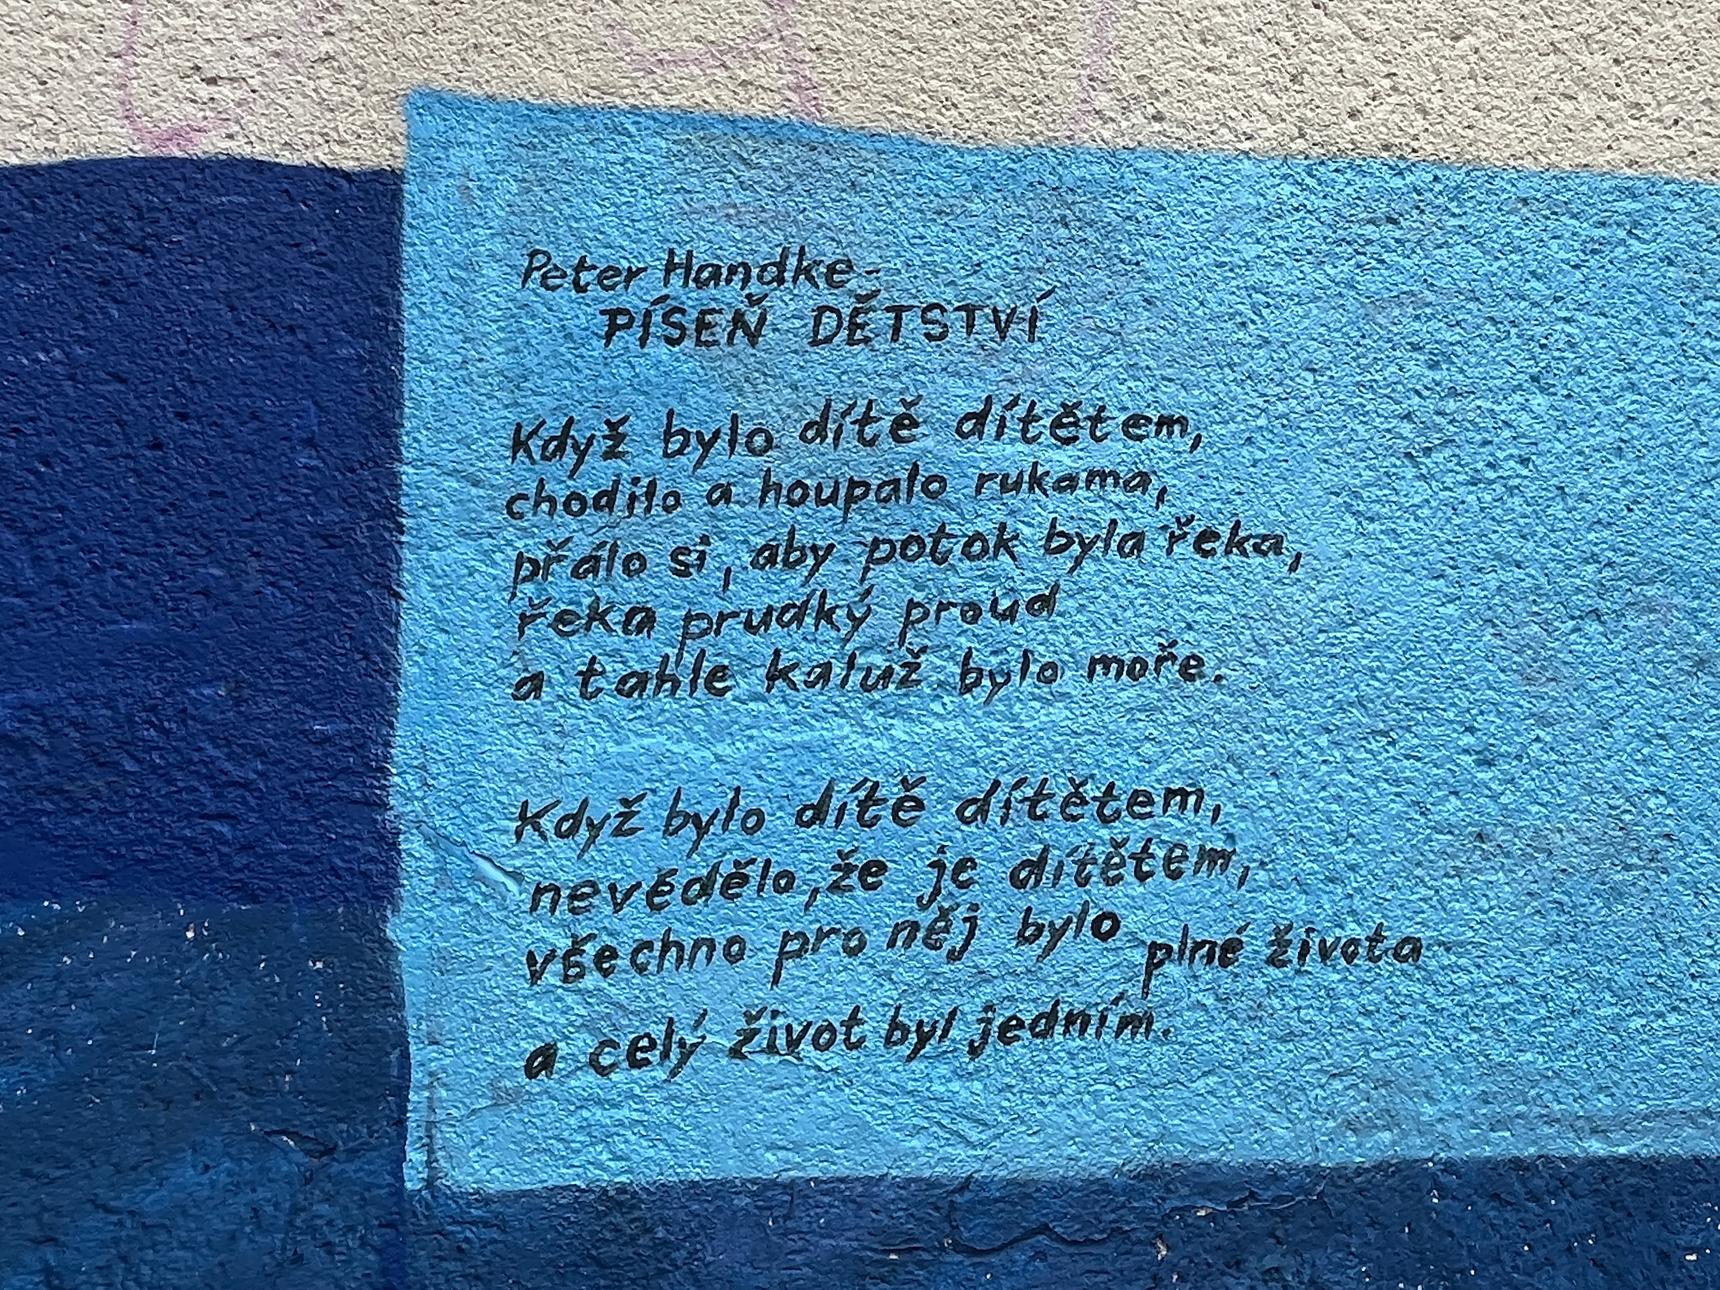 Peter Handke-
PÍSEŇ DĚTSTVÍ
Když bylo dítě dítětem,
chodilo a houpalo rukama,
přálo si, aby potok byla řeka,
řeka prudký proud
a tahle kaluž bylo moře.
Když bylo dítě dítětem,
nevědělo, že je dítětem,
všechno pro něj bylo plné života
a celý život byl jedním.